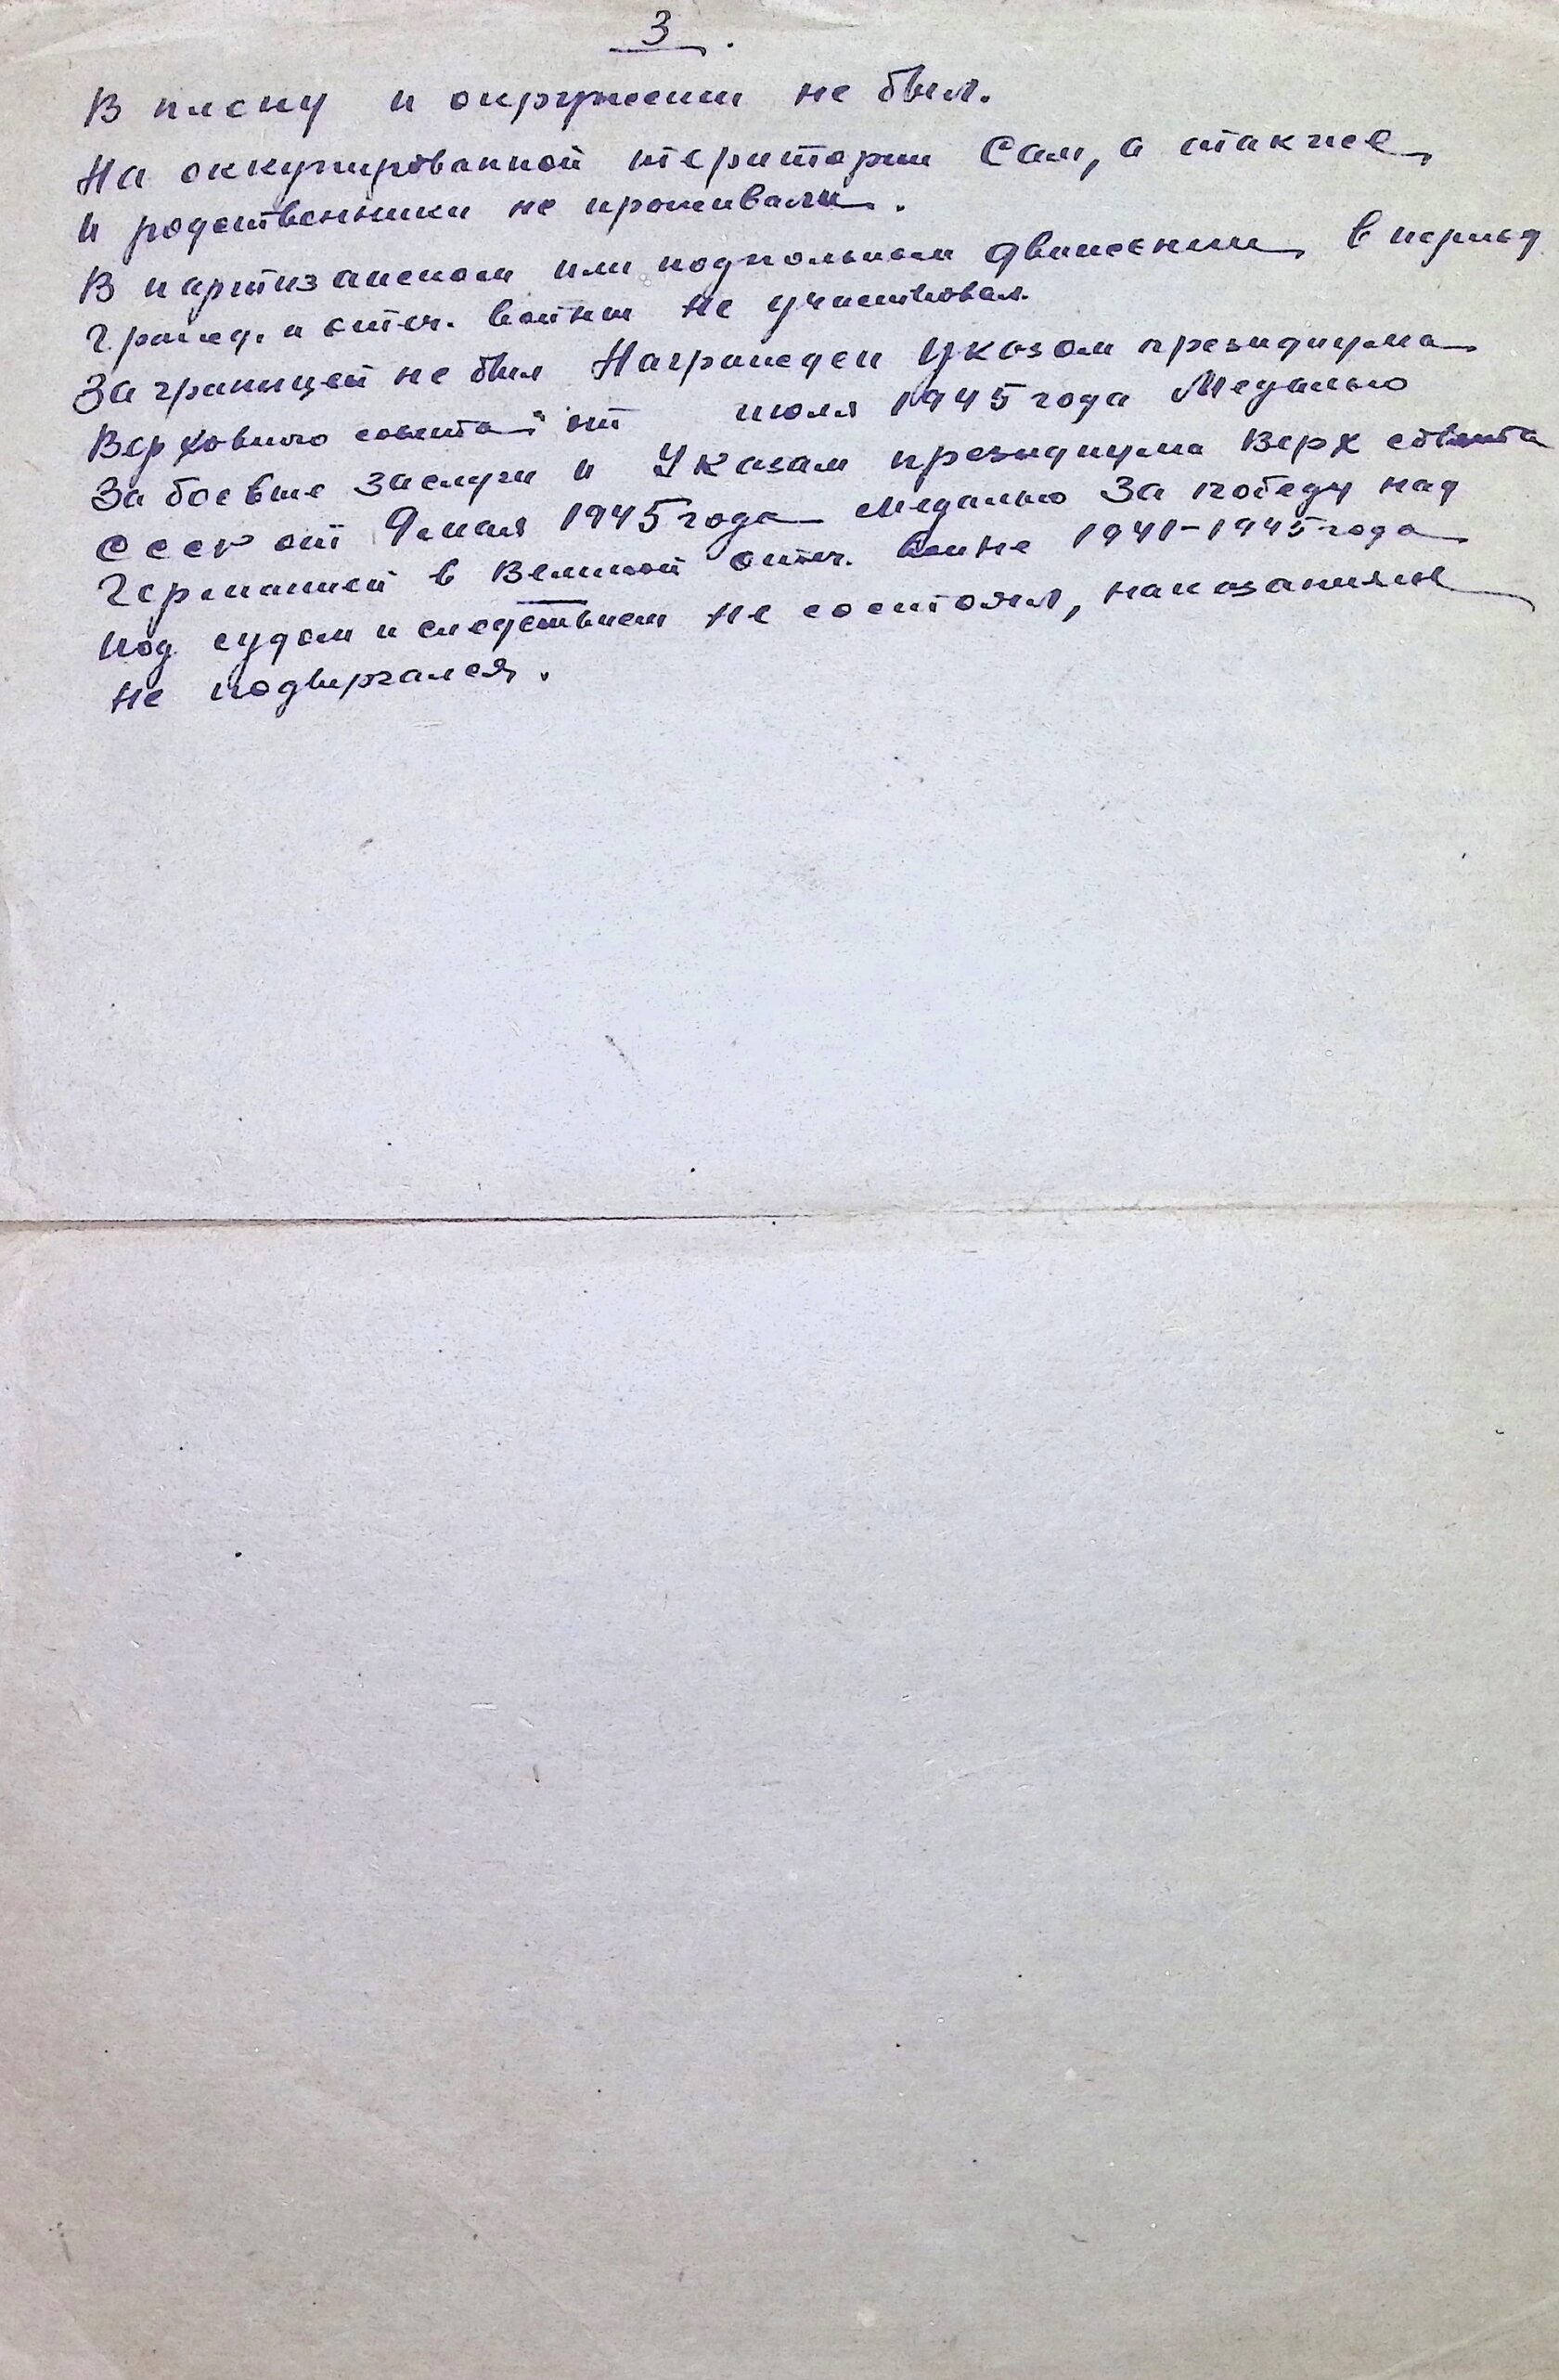 3.
В плену и окружении не был.
На оккупированной територии Сам, а также
и родственники не проживали.
В партизанском или подпольном движении в период
гражд. и отеч. войны не участвовал.
За границей не был Награжден Указом президиума
Верховного совета от июля 1945 года Медалью
За боевые заслуги и Указам президиума Верх совета
СССР от 9 мая 1945 года медалью За победу над
Германией в Великой отеч. войне 1941-1945 года
Под судом и следствием не состоял, наказаниям
не подвергался.